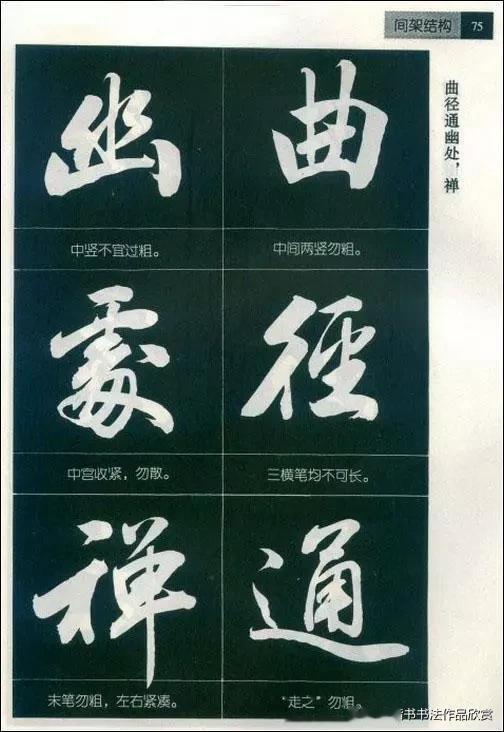 间架结构 75
曲径通幽处，禅
曲
中间两竖勿粗。
徑
三横笔均不可长。
通
“走之”勿粗。
幽
中竖不宜过粗。
處
中宫收紧，勿散。
禅
末笔勿粗，左右紧凑。
书书法作品欣赏